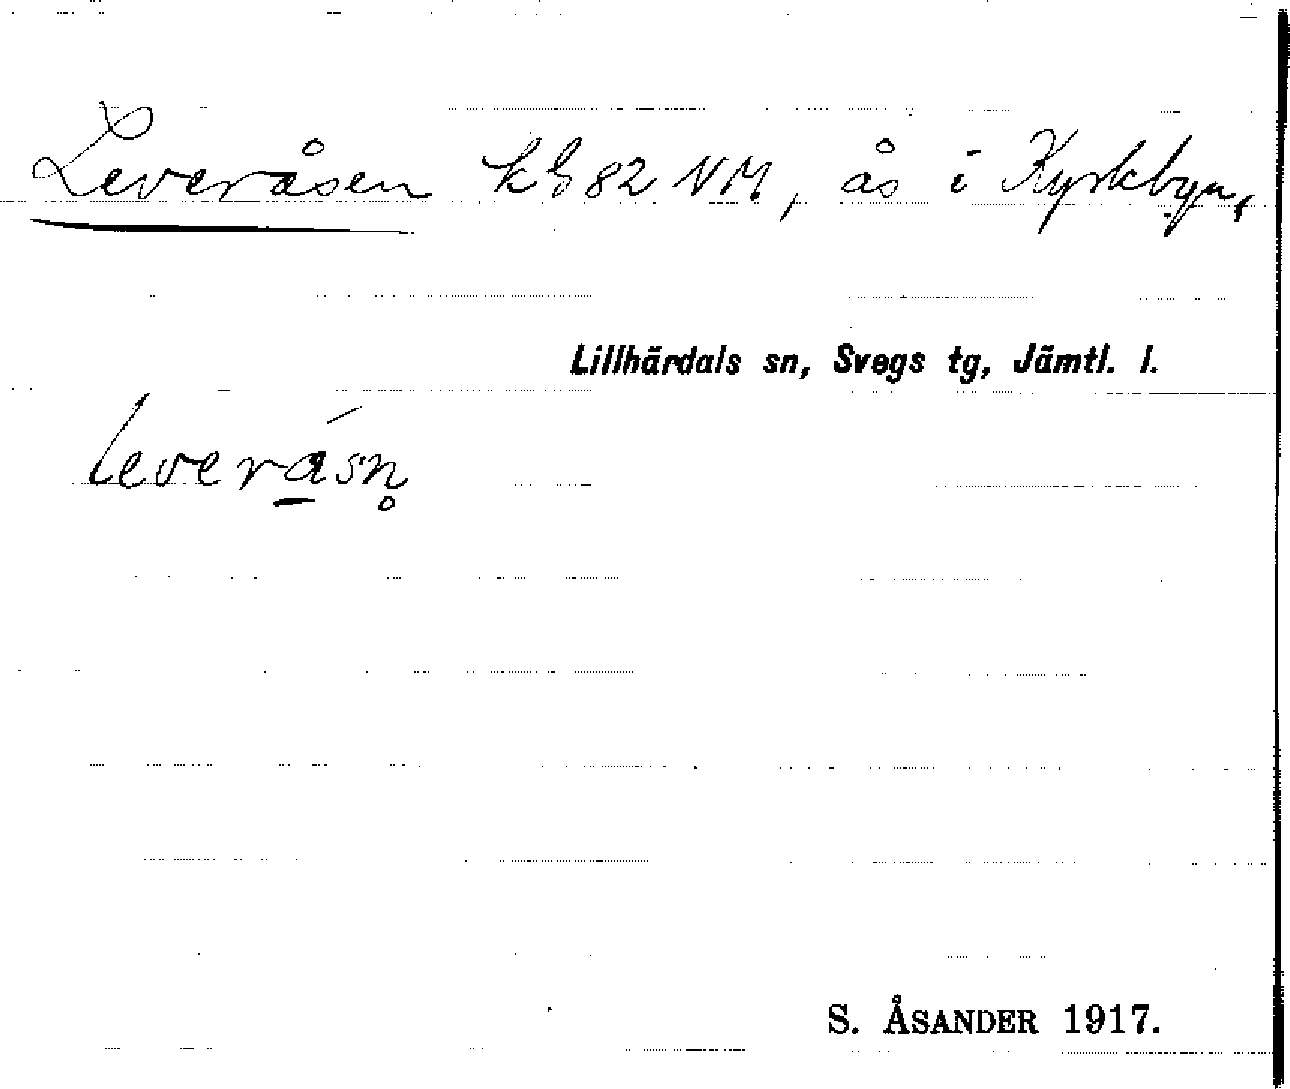 Leveråsen kG 82 NM, ås i Kyrkbyn,
Lillhärdals sn, Svegs tg, Jämtl. l.
leverásn̥
S. ÅSANDER 1917.